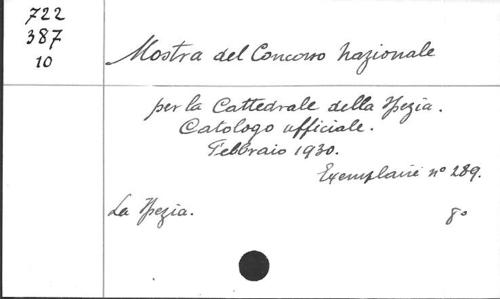 722
387
10
Mostra del Concorso Nazionale
per la Cattedrale della Spezia.
Catologo ufficiale.
Febbraio 1930.
Exemplaire nº 289.
La Spezia.
8º